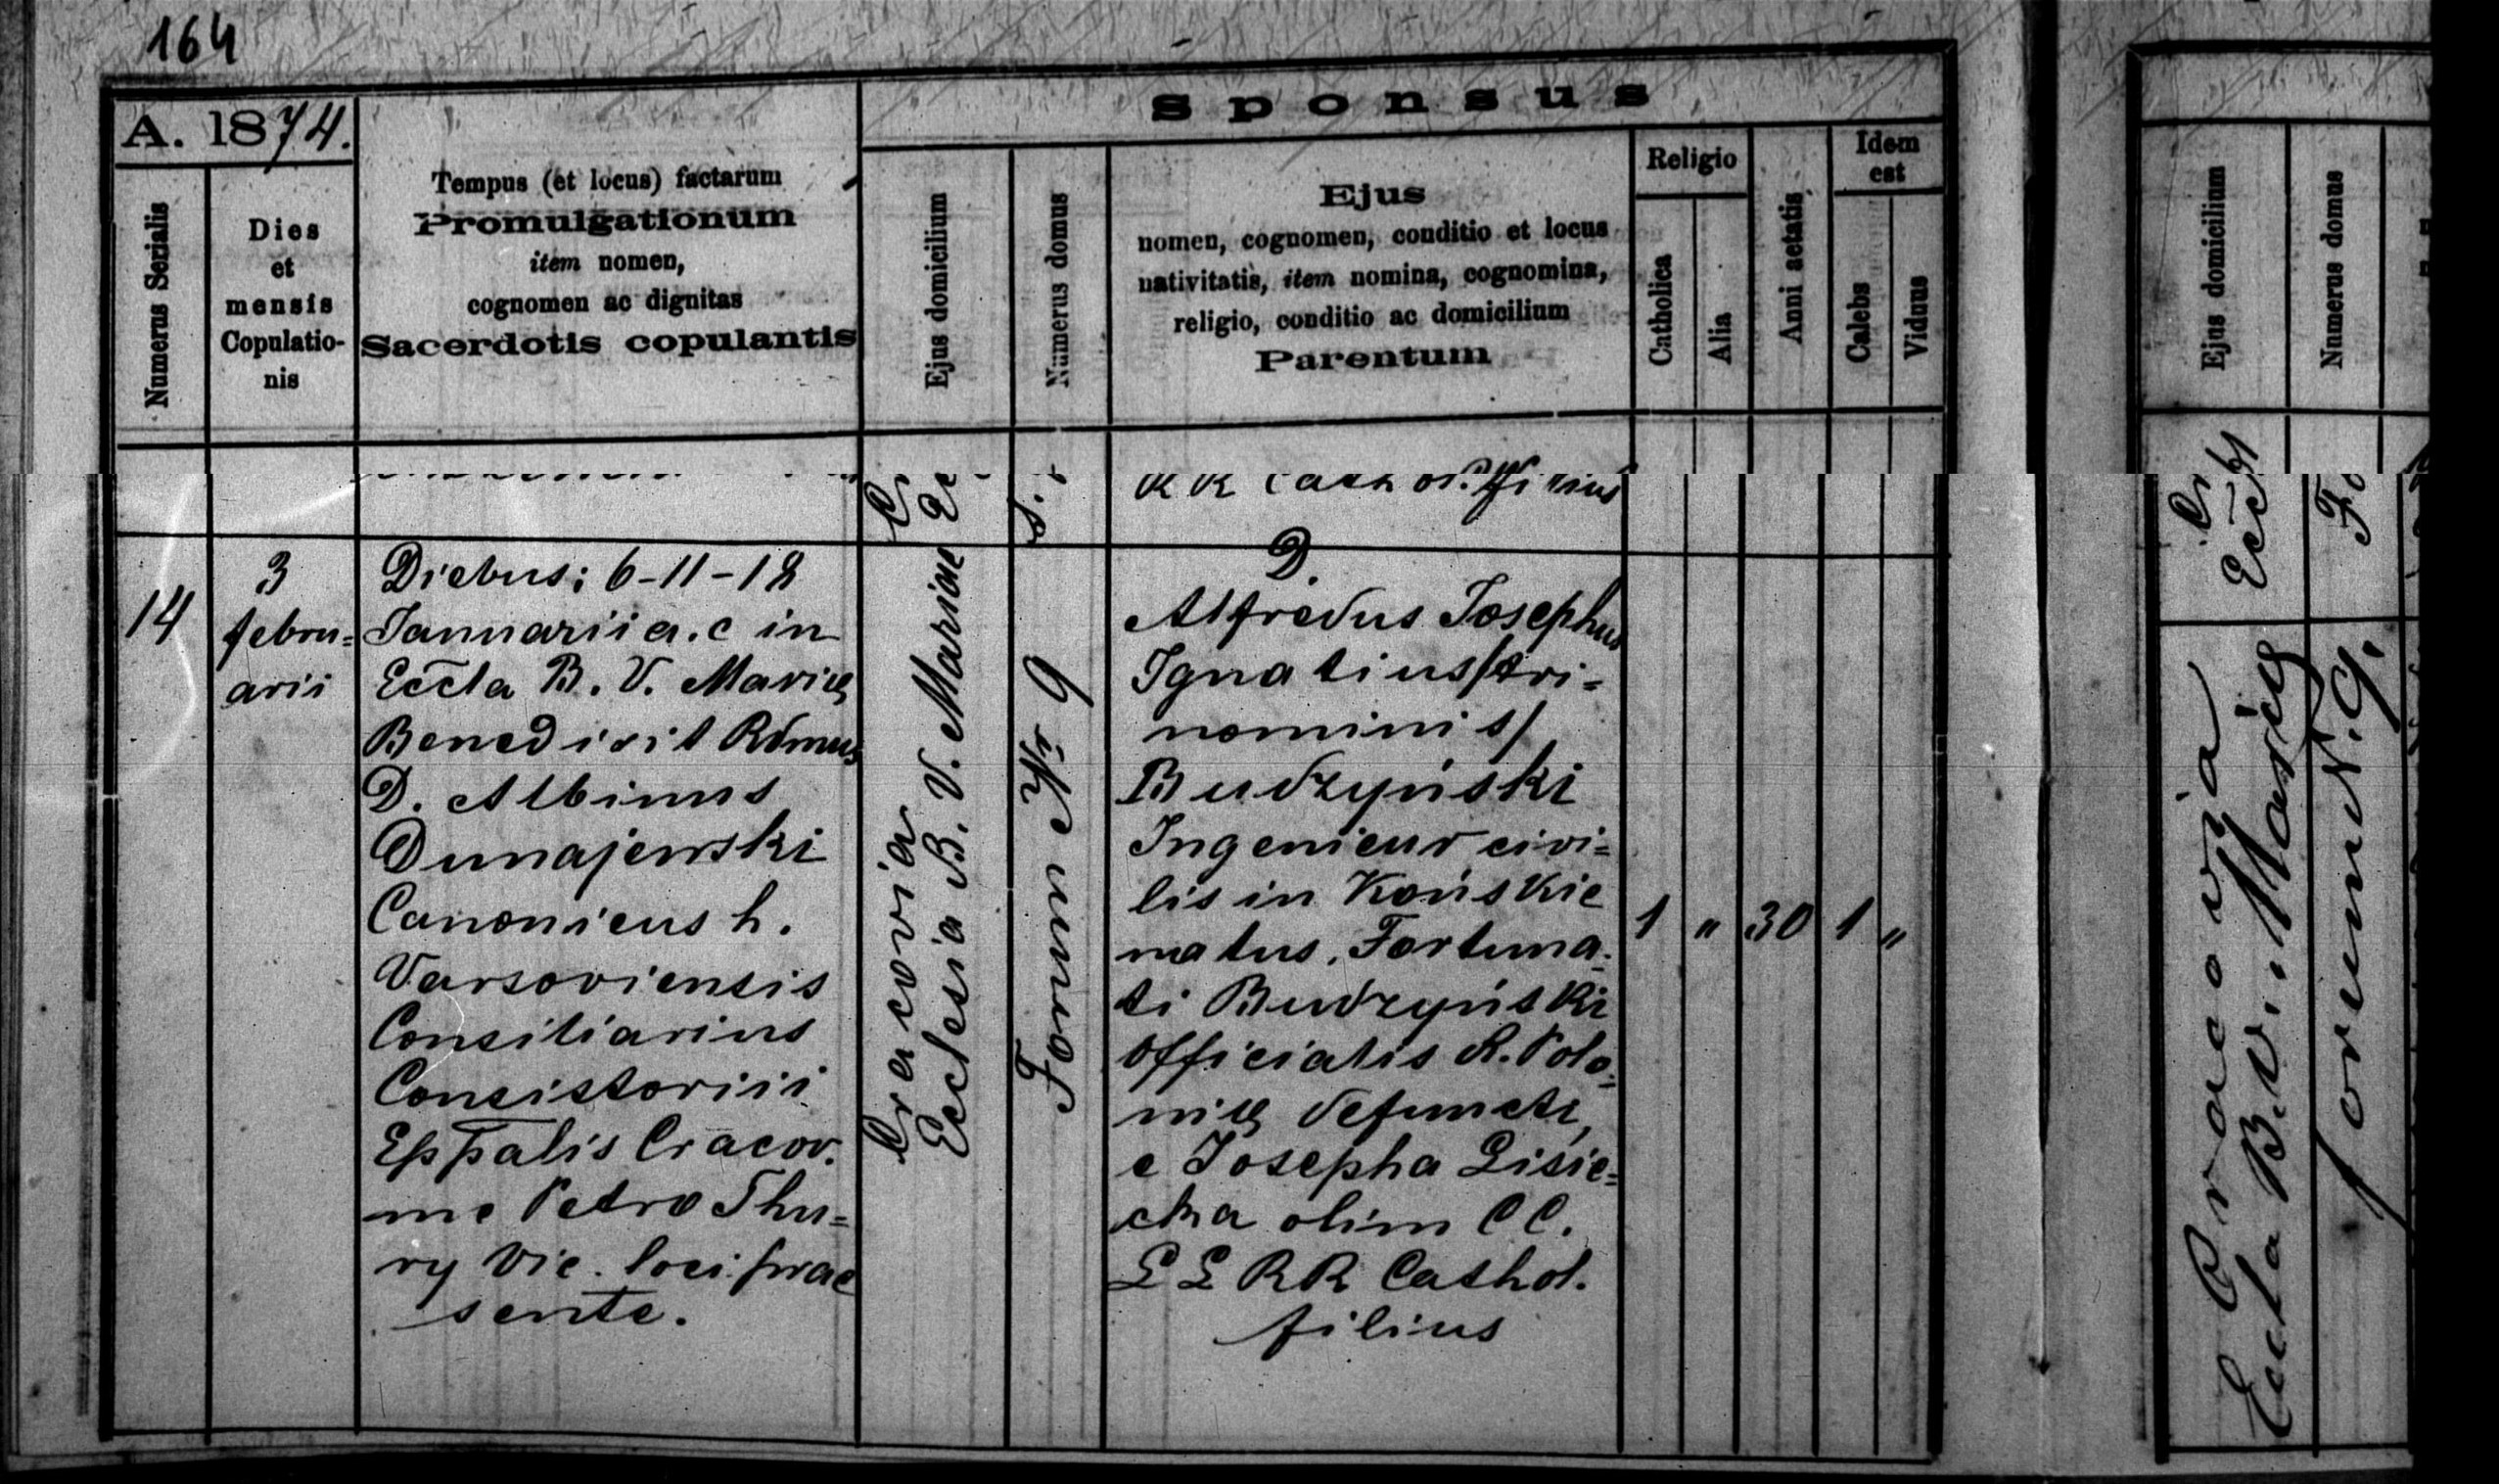 164
A. 1874.
Numerus Serialis
Dies
et
mensis
Copulatio-
nis
Tempus (et locus) factarum
Promulgationum
item nomen,
cognomen ac dignitas
Sacerdotis copulantis
Sponsus
Ejus domicilium
Numerus domus
Ejus
nomen, cognomen, conditio et locus
nativitatis, item nomina, cognomina,
religio, conditio ac domicilium
Parentum
Religio
Catholica
Alia
Anni aetatis
Idem
est
Calebs
Viduus
Ejus domicilium
Numerus domus
RR Cathol. filius
14
3
febru=
arii
Diebus: 6-11-18
Januarii a.c in
Eccla B. V. Mariæ
Benedixit Rdmus
D. Albinus
Dunajewski
Canonicus h.
Varsoviensis
Consiliarius
Consistorii
Eppalis Cracov.
me Petro Thu=
ry Vic. loci prae
sente.
Cracovia
Ecclesia B. V. Mariae
Forum Nr 9
D.
Alfredus Josephus
Ignatius /tri=
nominis/
Budzyński
Ingenieur civi=
lis in Końskie
natus, Fortuna=
ti Budzyński
Officialis R. Polo=
niæ defuncti,
e Josepha Lisie=
cka olim CC.
LL RR Cathol.
filius
1 " 30 1 "
Cracovia
Eccla B.V. Mariæ
forum N. 9.